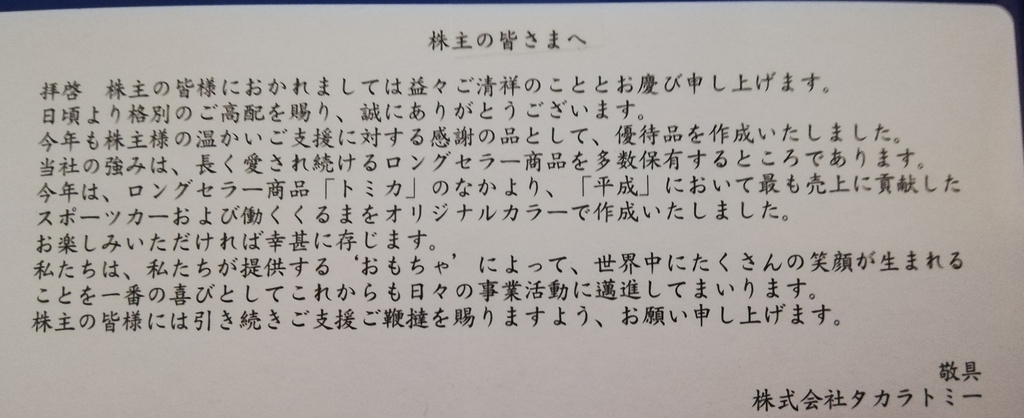 株主の皆さまへ
拝啓　株主の皆様におかれましては益々ご清祥のこととお慶び申し上げます。
日頃より格別のご高配を賜り、誠にありがとうございます。
今年も株主様の温かいご支援に対する感謝の品として、優待品を作成いたしました。
当社の強みは、長く愛され続けるロングセラー商品を多数保有するところであります。
今年は、ロングセラー商品「トミカ」のなかより、「平成」において最も売上に貢献した
スポーツカーおよび働くくるまをオリジナルカラーで作成いたしました。
お楽しみいただければ幸甚に存じます。
私たちは、私たちが提供する‘おもちゃ’によって、世界中にたくさんの笑顔が生まれる
ことを一番の喜びとしてこれからも日々の事業活動に邁進してまいります。
株主の皆様には引き続きご支援ご鞭撻を賜りますよう、お願い申し上げます。
敬具
株式会社タカラトミー